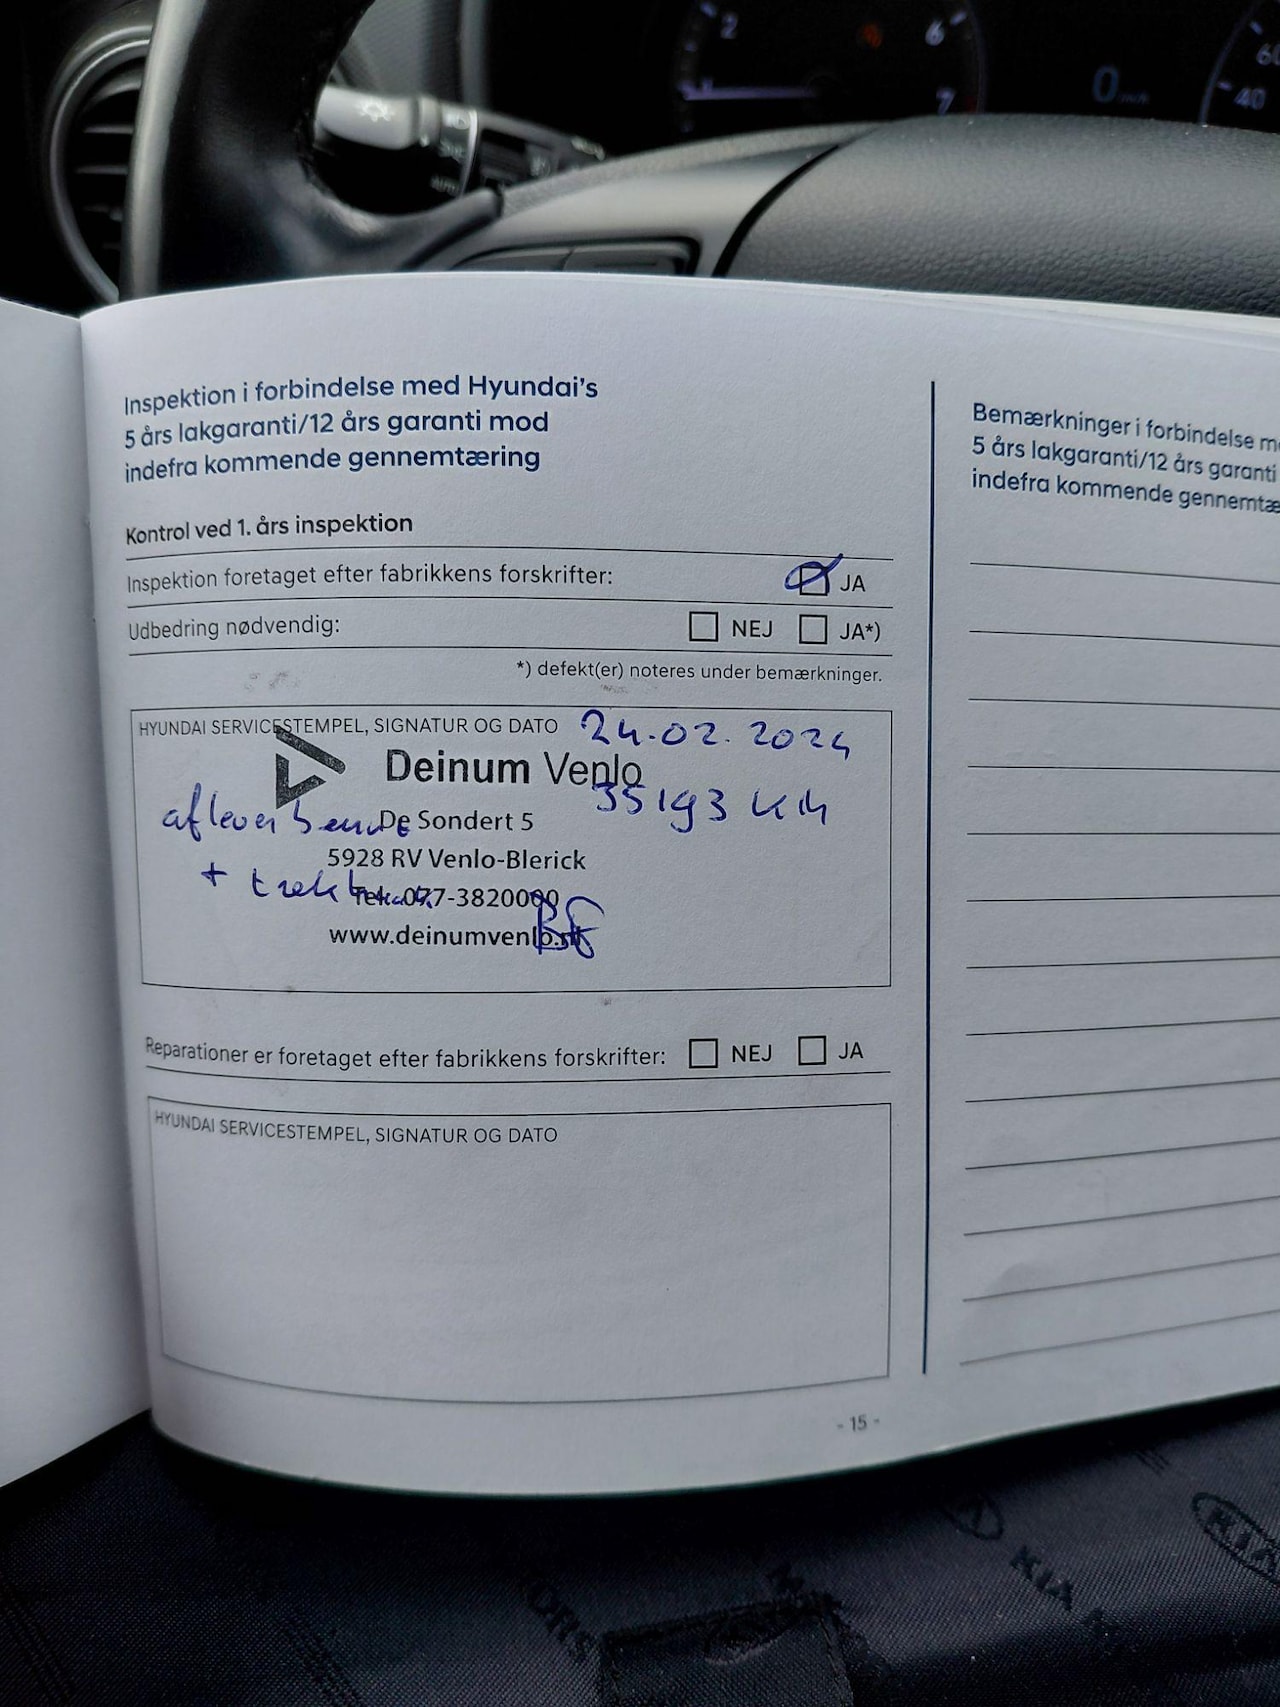 2
6
7
0
60
40
AUTO
Inspektion i forbindelse med Hyundai's
5 års lakgaranti/12 års garanti mod
indefra kommende gennemtæring
Kontrol ved 1. års inspektion
Inspektion foretaget efter fabrikkens forskrifter: JA
Udbedring nødvendig: NEJ JA*)
*) defekt(er) noteres under bemærkninger.
HYUNDAI SERVICESTEMPEL, SIGNATUR OG DATO 24.02.2024
Deinum Venlo
35193 KM
aflever beurt De Sondert 5
5928 RV Venlo-Blerick
+ trekhaak Tel. 077-3820000
www.deinumvenlo.nl
Reparationer er foretaget efter fabrikkens forskrifter: NEJ JA
HYUNDAI SERVICESTEMPEL, SIGNATUR OG DATO
- 15 -
Bemærkninger i forbindelse m
5 års lakgaranti/12 års garanti
indefra kommende gennemtæ
KIA
KIA